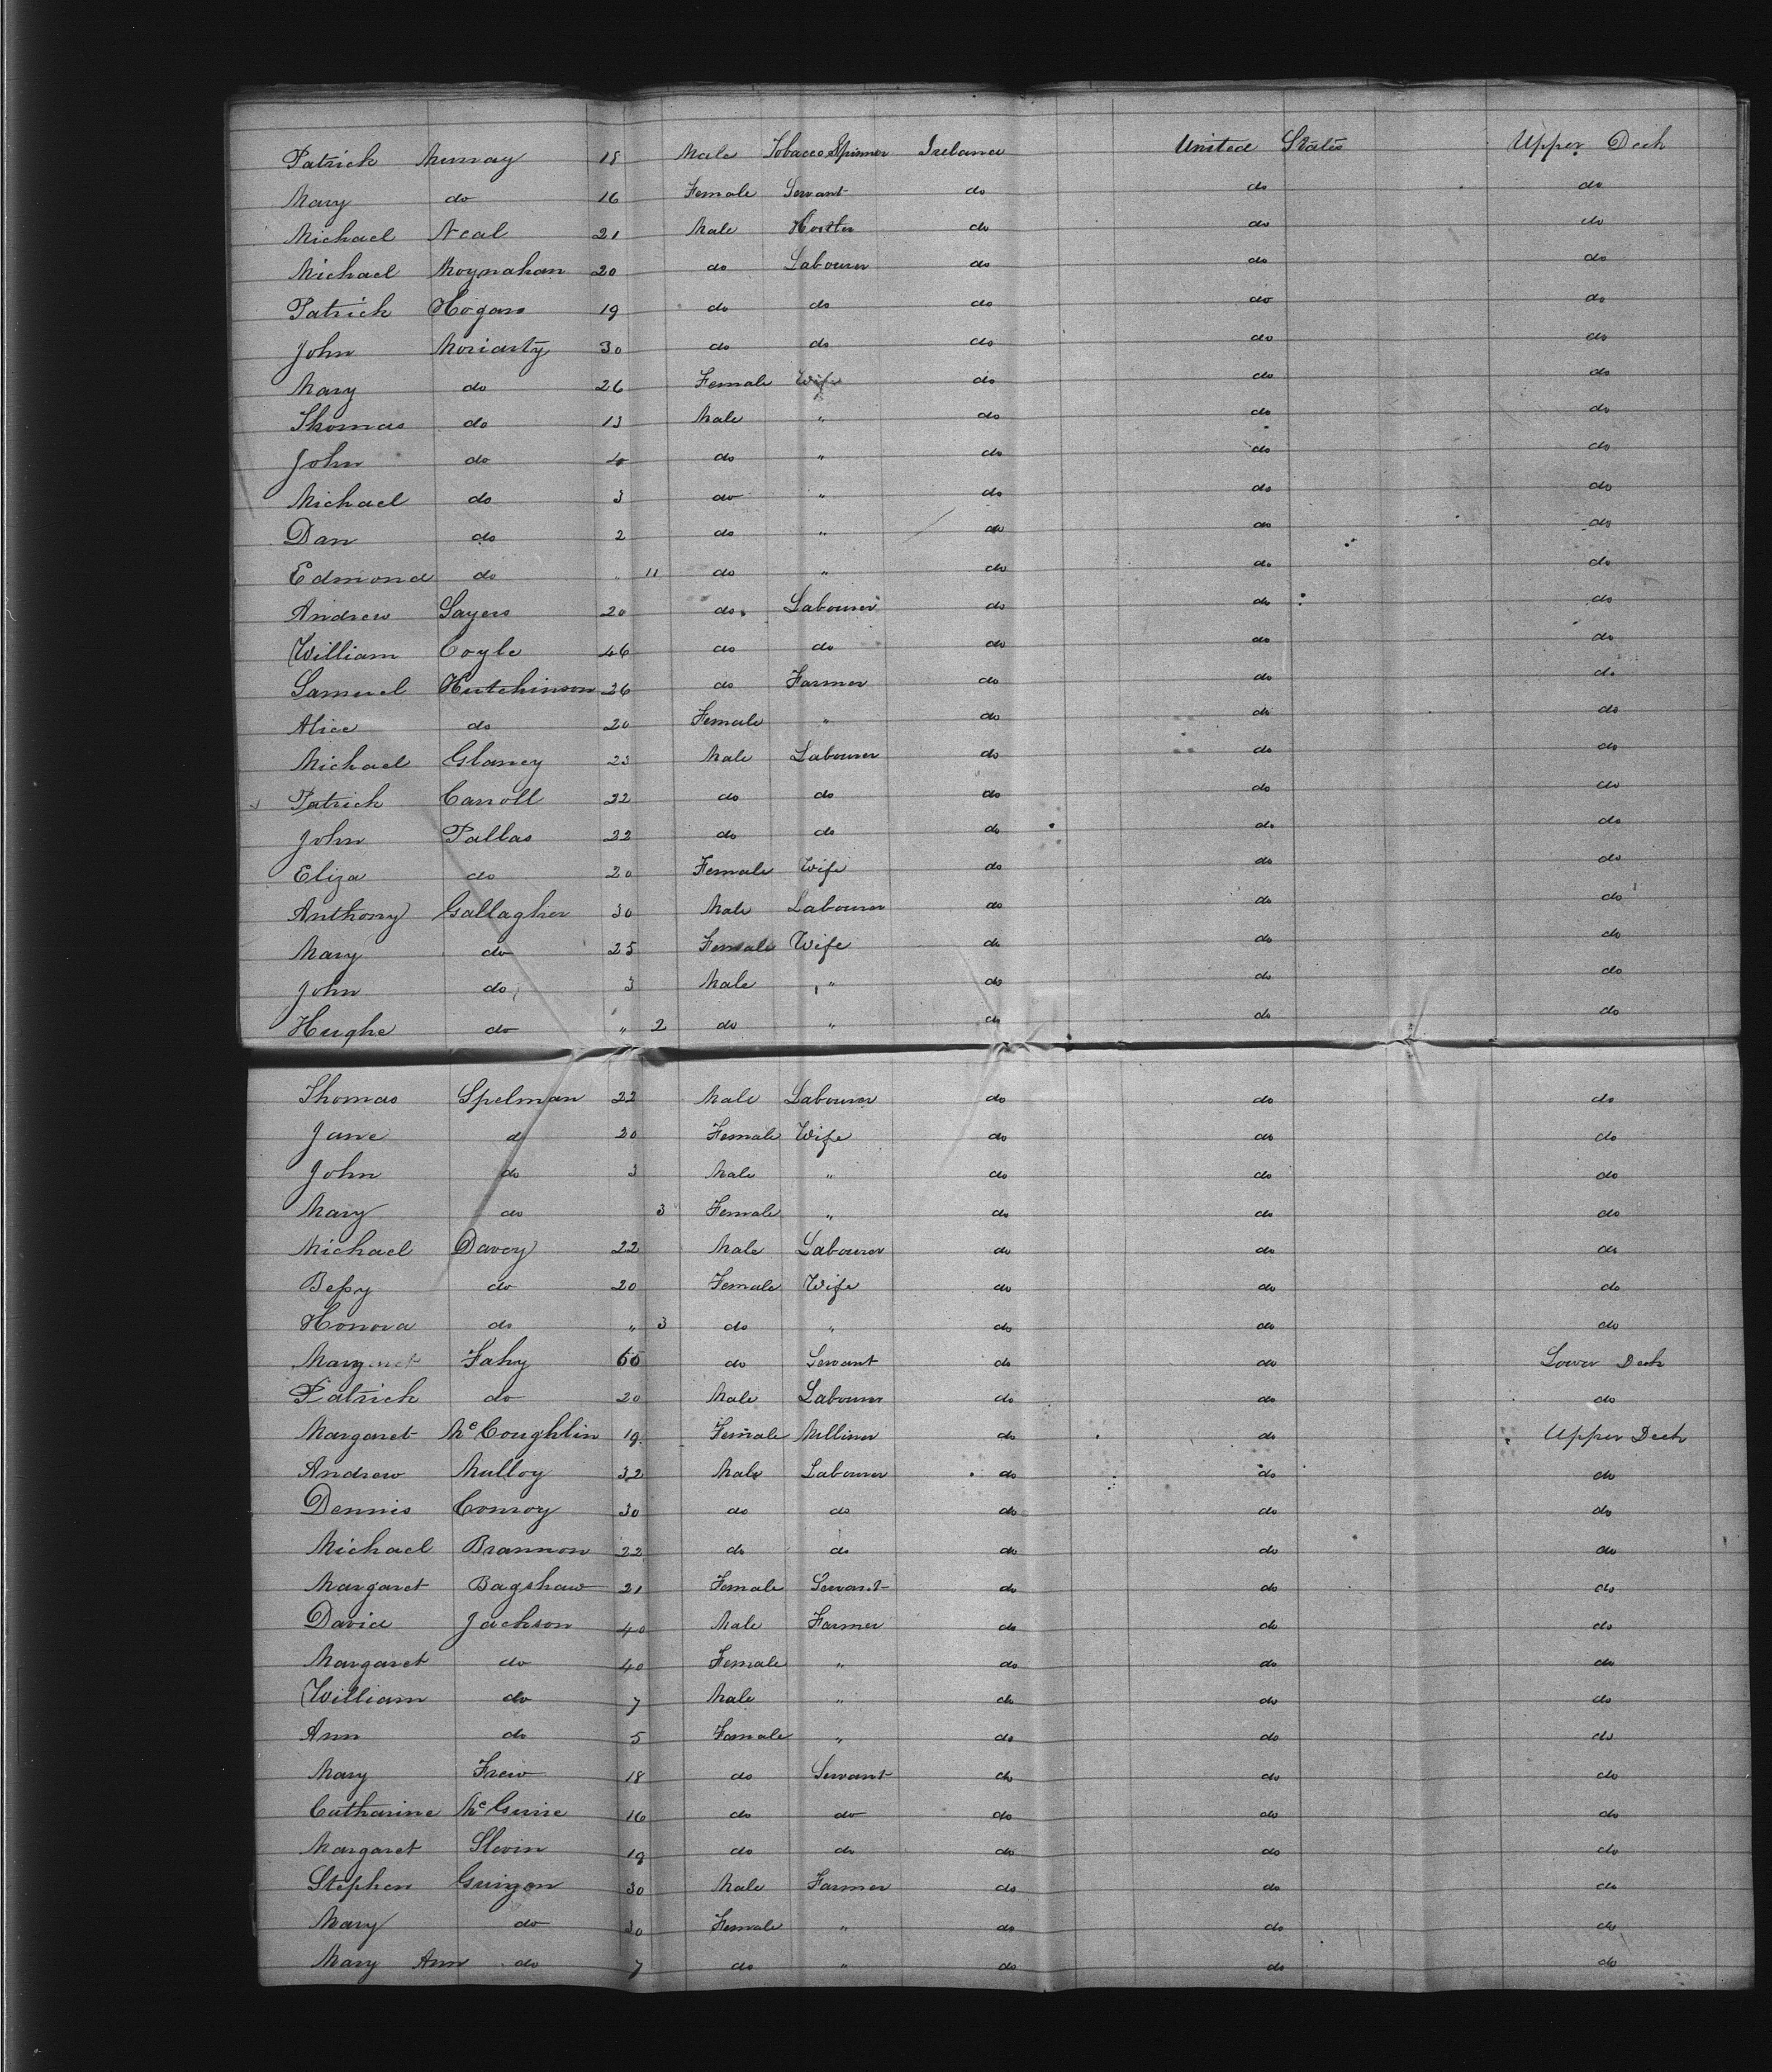 Patrick Murray 18 Male Tobacco Spinner Ireland United States Upper Deck
Mary do 16 Female Servant do do do
Michael Neal 21 Male Hostler do do do
Michael Moynahan 20 do Labourer do do do
Patrick Hogan 19 do do do do do
John Moriarty 30 do do do do do
Mary do 26 Female Wife do do do
Thomas do 13 Male " do do do
John do 4 do " do do do
Michael do 3 do " do do do
Dan do 2 do " do do do
Edmond do " 11 do " do do do
Andrew Sayers 20 do Labourer do do do
William Coyle 46 do do do do do
Samuel Hutchinson 26 do Farmer do do do
Alice do 20 Female " do do do
Michael Glancy 23 Male Labourer do do do
Patrick Carroll 22 do do do do do
John Pallas 22 do do do do do
Eliza do 20 Female Wife do do do
Anthony Gallagher 30 Male Labourer do do do
Mary do 25 Female Wife do do do
John do 3 Male " do do do
Hughe do " 2 do " do do do
Thomas Spelman 22 Male Labourer do do do
Jane d 20 Female Wife do do do
John do 3 Male " do do do
Mary do 3 Female " do do do
Michael Davey 22 Male Labourer do do do
Bessy do 20 Female Wife do do do
Honora do " 3 do " do do do
Margaret Fahy 60 do Servant do do Lower Deck
Patrick do 20 Male Labourer do do do
Margaret McCoughlin 19 Female Milliner do do Upper Deck
Andrew Mulloy 32 Male Labourer do do do
Dennis Conroy 30 do do do do do
Michael Brannon 22 do do do do do
Margaret Bagshaw 21 Female Servant do do do
David Jackson 40 Male Farmer do do do
Margaret do 40 Female " do do do
William do 7 Male " do do do
Ann do 5 Female " do do do
Mary Frew 18 do Servant do do do
Catharine McGuire 16 do do do do do
Margaret Slevin 19 do do do do do
Stephen 30 Male Farmer do do do
Mary do 30 Female " do do do
Mary Ann do 7 do " do do do